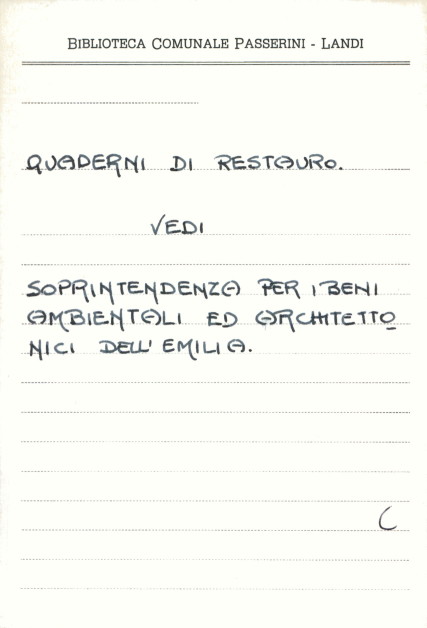 BIBLIOTECA COMUNALE PASSERINI - LANDI
QUADERNI DI RESTAURO.
VEDI
SOPRINTENDENZA PER I BENI
AMBIENTALI ED ARCHITETTO
NICI DELL'EMILIA.
C